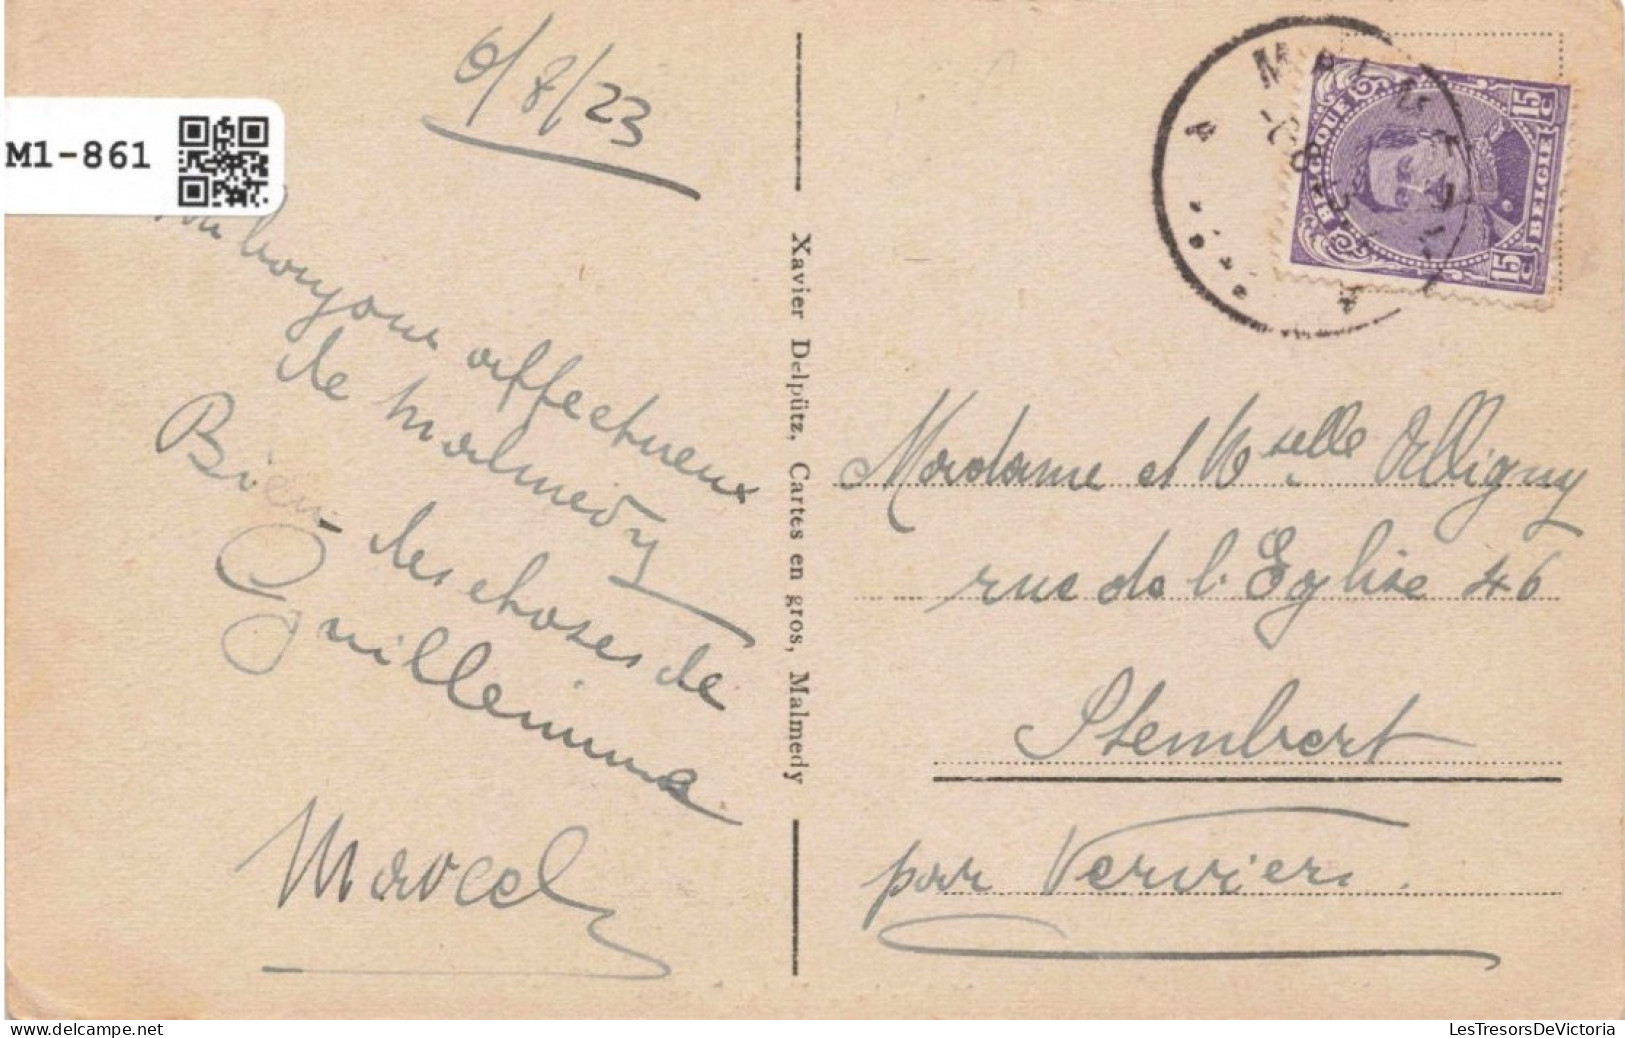 6/8/23
M1-861
bonjour affectueux
de Malmédy
Bien des choses de
Guillemine
Marcel
Xavier Delpütz, Cartes en gros, Malmedy
BELGIQUE
15 C
BELGIË
15 C
Madame et Mselle Alligny
rue de l'Eglise 46
Stembert
par Verviers.
LesTresorsDeVictoria